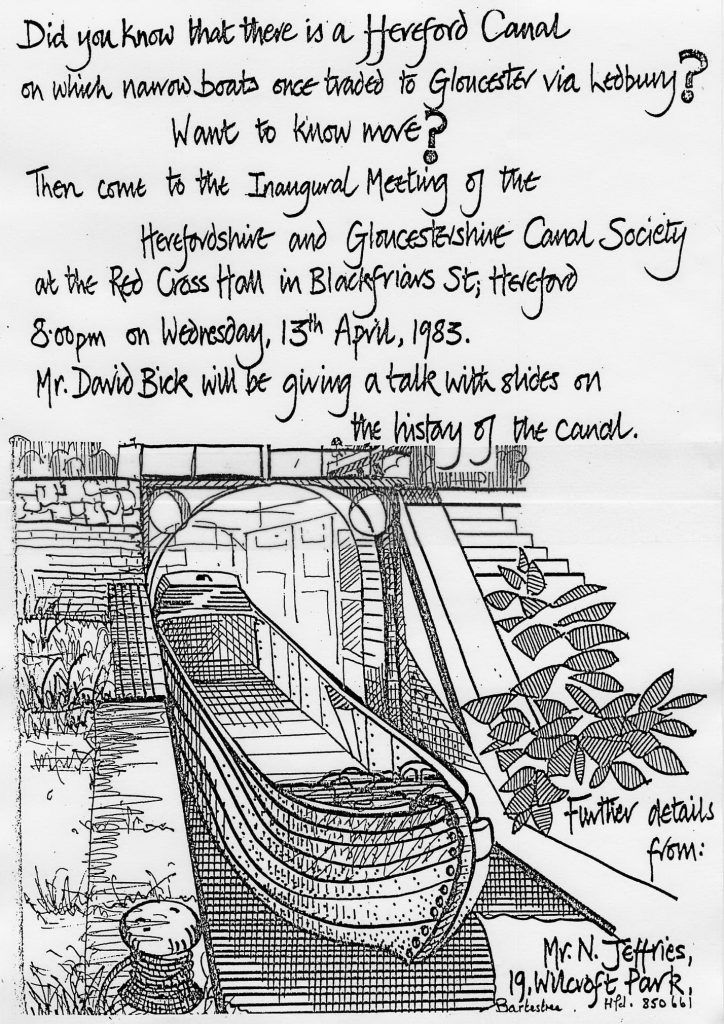 Did you know that there is a Hereford Canal
on which narrow boats once traded to Gloucester via Ledbury?
Want to know more?
Then come to the Inaugural Meeting of the
Herefordshire and Gloucestershire Canal Society
at the Red Cross Hall in Blackfriars St; Hereford
8.00pm on Wednesday, 13th April, 1983.
Mr. David Bick will be giving a talk with slides on
the history of the canal.
Further details
from:
Mr. N. Jeffries,
19, Wilcroft Park,
Bartestree. Hfd. 850661